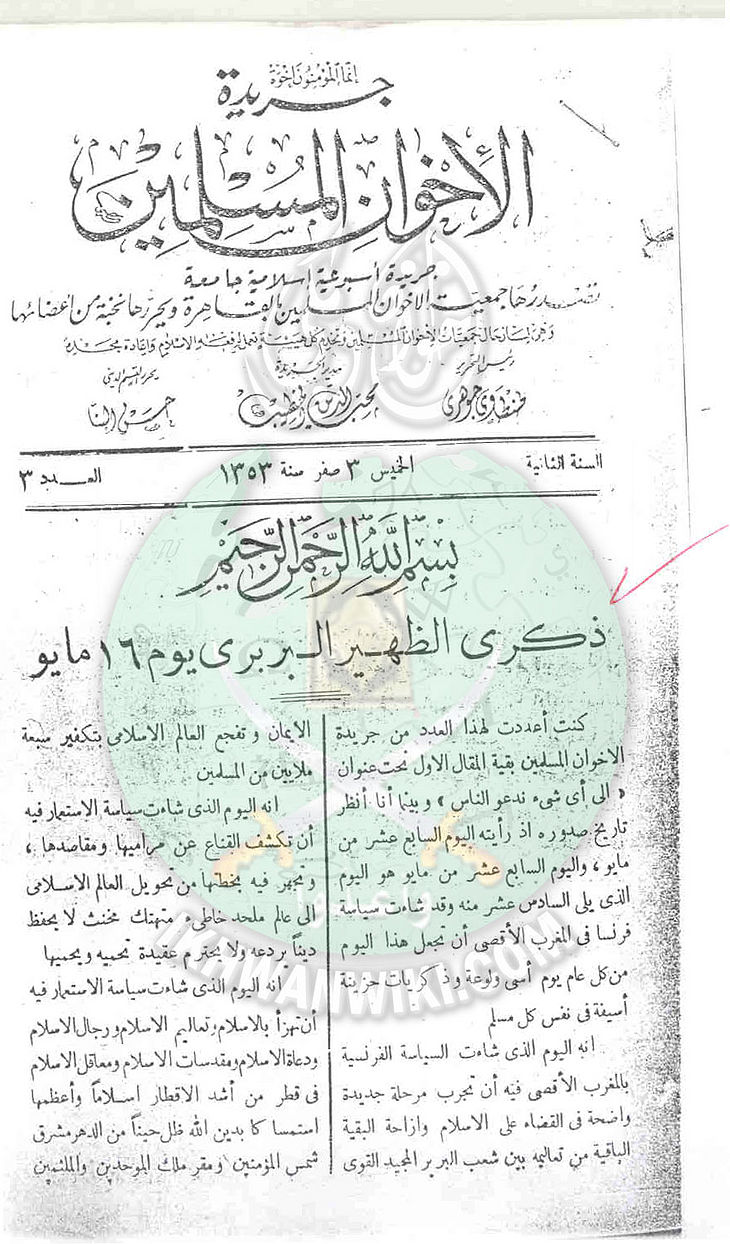 إنما المؤمنون إخوة
جريدة
الإخوان المسلمين
جريدة أسبوعية إسلامية جامعة
تصدرها جمعية الإخوان المسلمين بالقاهرة ويحررها نخبة من أعضائها
وهى لسان حال جمعيات الإخوان المسلمين وتخدم كل هيئة تعمل لرفعة الإسلام وإعادة مجده
رئيس التحرير
مدير الجريدة
يحرر القسم الدينى
طنطاوى جوهرى
محب الدين الخطيب
حسن البنا
السنة الثانية
الخميس ٣ صفر سنة ١٣٥٣
العـدد ٣
بسم الله الرحمن الرحيم
ذكرى الظهير البربرى يوم ١٦ مايو
كنت أعددت لهذا العدد من جريدة
الاخوان المسلمين بقية المقال الاول تحت عنوان
« الى أى شىء ندعو الناس » وبينما أنا أنظر
تاريخ صدوره اذ رأيته اليوم السابع عشر من
مايو ، واليوم السابع عشر من مايو هو اليوم
الذى يلى السادس عشر منه وقد شاءت سياسة
فرنسا فى المغرب الأقصى أن تجعل هذا اليوم
من كل عام يوم أسى ولوعة وذكريات حزينة
أسيفة فى نفس كل مسلم
انه اليوم الذى شاءت السياسة الفرنسية
بالمغرب الأقصى فيه أن تجرب مرحلة جديدة
واضحة فى القضاء على الاسلام وازاحة البقية
الباقية من تعاليمه بين شعب البربر المجيد القوى
الايمان وتفجع العالم الاسلامى بتكفير سبعة
ملايين من المسلمين
انه اليوم الذى شاءت سياسة الاستعمار فيه
أن تكشف القناع عن مراميها ومقاصدها ،
وتجهر فيه بخطتها من تحويل العالم الاسلامى
الى عالم ملحد خاطىء متهتك مخنث لا يحفظ
ديناً يردعه ولا يحترم عقيدة تحميه ويحميها
إنه اليوم الذى شاءت سياسة الاستعمار فيه
أن تهزأ بالاسلام وتعاليم الاسلام ورجال الاسلام
ودعاة الاسلام ومقدسات الاسلام ومعاقل الاسلام
فى قطر من أشد الاقطار اسلاماً وأعظمها
استمساكا بدين الله ظل حيناً من الدهر مشرق
شمس المؤمنين ومقر ملك الموحدين والملثمين
IKHWANWIKI.COM
وأعدوا